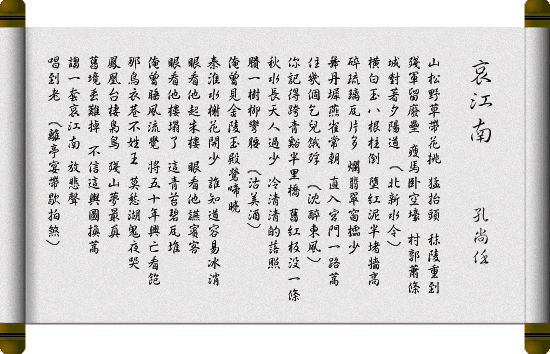 哀江南 孔尚任
山松野草帶花挑 猛抬頭 秣陵重到
殘軍留廢壘 瘦馬卧空壕 村郭蕭條
城對著夕陽道 （北新水令）
橫白玉八根柱倒 墮紅泥半堵牆高
碎琉璃瓦片多 爛翡翠窗櫺少
舞丹墀燕雀常朝 直入宮門一路蒿
住幾個乞兒餓殍 （沈醉東風）
你記得跨青谿半里橋 舊紅板沒一條
秋水長天人過少 冷清清的落照
賸一樹柳彎腰 （沽美酒）
俺曾見金陵玉殿鶯啼曉
秦淮水榭花開少 誰知道容易冰消
眼看他起朱樓 眼看他讌賓客
眼看他樓塌了 這青苔碧瓦堆
俺曾睡風流覺 將五十年興亡看飽
那烏衣巷不姓王 莫愁湖鬼夜哭
鳳凰台棲梟鳥 殘山夢最真
舊境丟難掉 不信這輿圖換藁
謅一套哀江南 放悲聲
唱到老 （離亭宴帶歇拍煞）